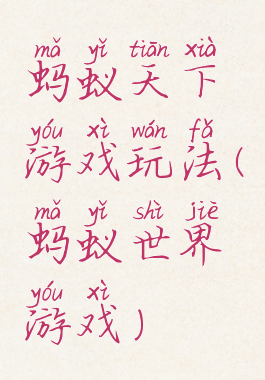 mǎ yǐ tiān xià
蚂蚁天下
yóu xì wán fǎ
游戏玩法(
mǎ yǐ shì jiè
蚂蚁世界
yóu xì
游戏)